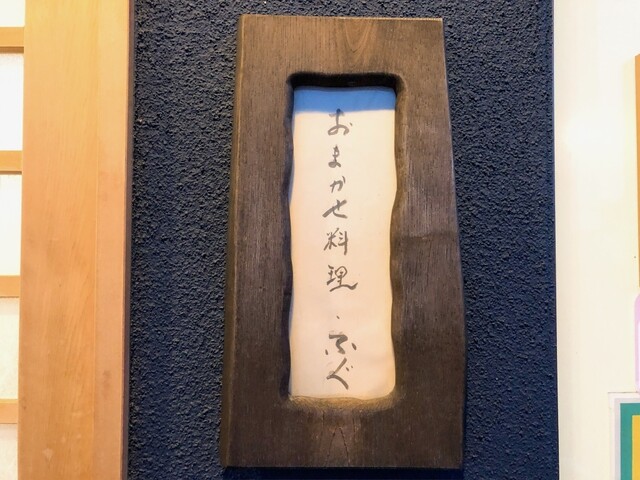 おまかせ料理・ふぐ